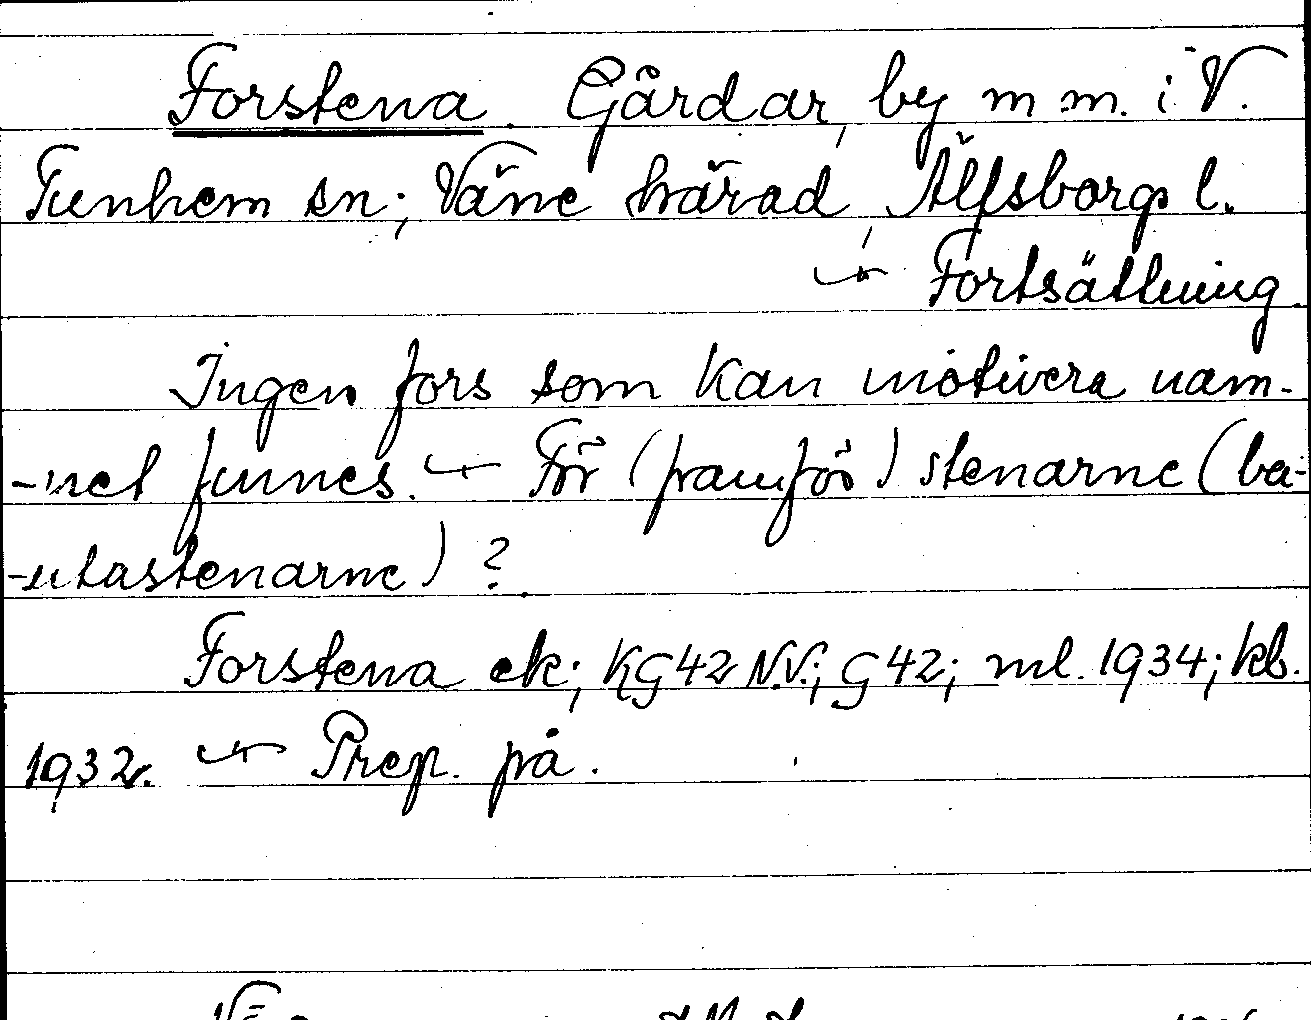 Forstena. Gårdar, by m m. i V.
Tunhem sn; Väne härad, Älfsborgs l.
— Fortsättning.
Ingen fors som kan motivera nam-
-net finnes. — För (framför) stenarne (ba-
-utastenarne) ?
Forstena ek; KG42 N.V.; G42; ml. 1934; kb.
1932. — Prep. på.